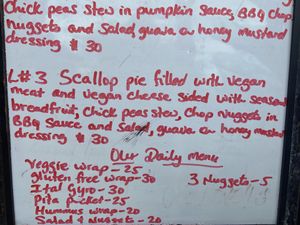 Chick peas stew in pumpkin sauce, BBQ Chop
Nuggets and Salad, guava or honey mustard
dressing $ 30
L#3 Scallop pie filled with vegan
meat and vegan cheese sided with season
breadfruit, Chick peas stew, Chop nuggets in
BBQ Sauce and Salad, guava or honey mustard
dressing $ 30
Our Daily menu
Veggie wrap - 25
Gluten free wrap - 30
3 Nuggets - 5
Ital Gyro - 30
Pita pocket - 25
Hummus wrap - 20
Salad 4 nuggets - 20